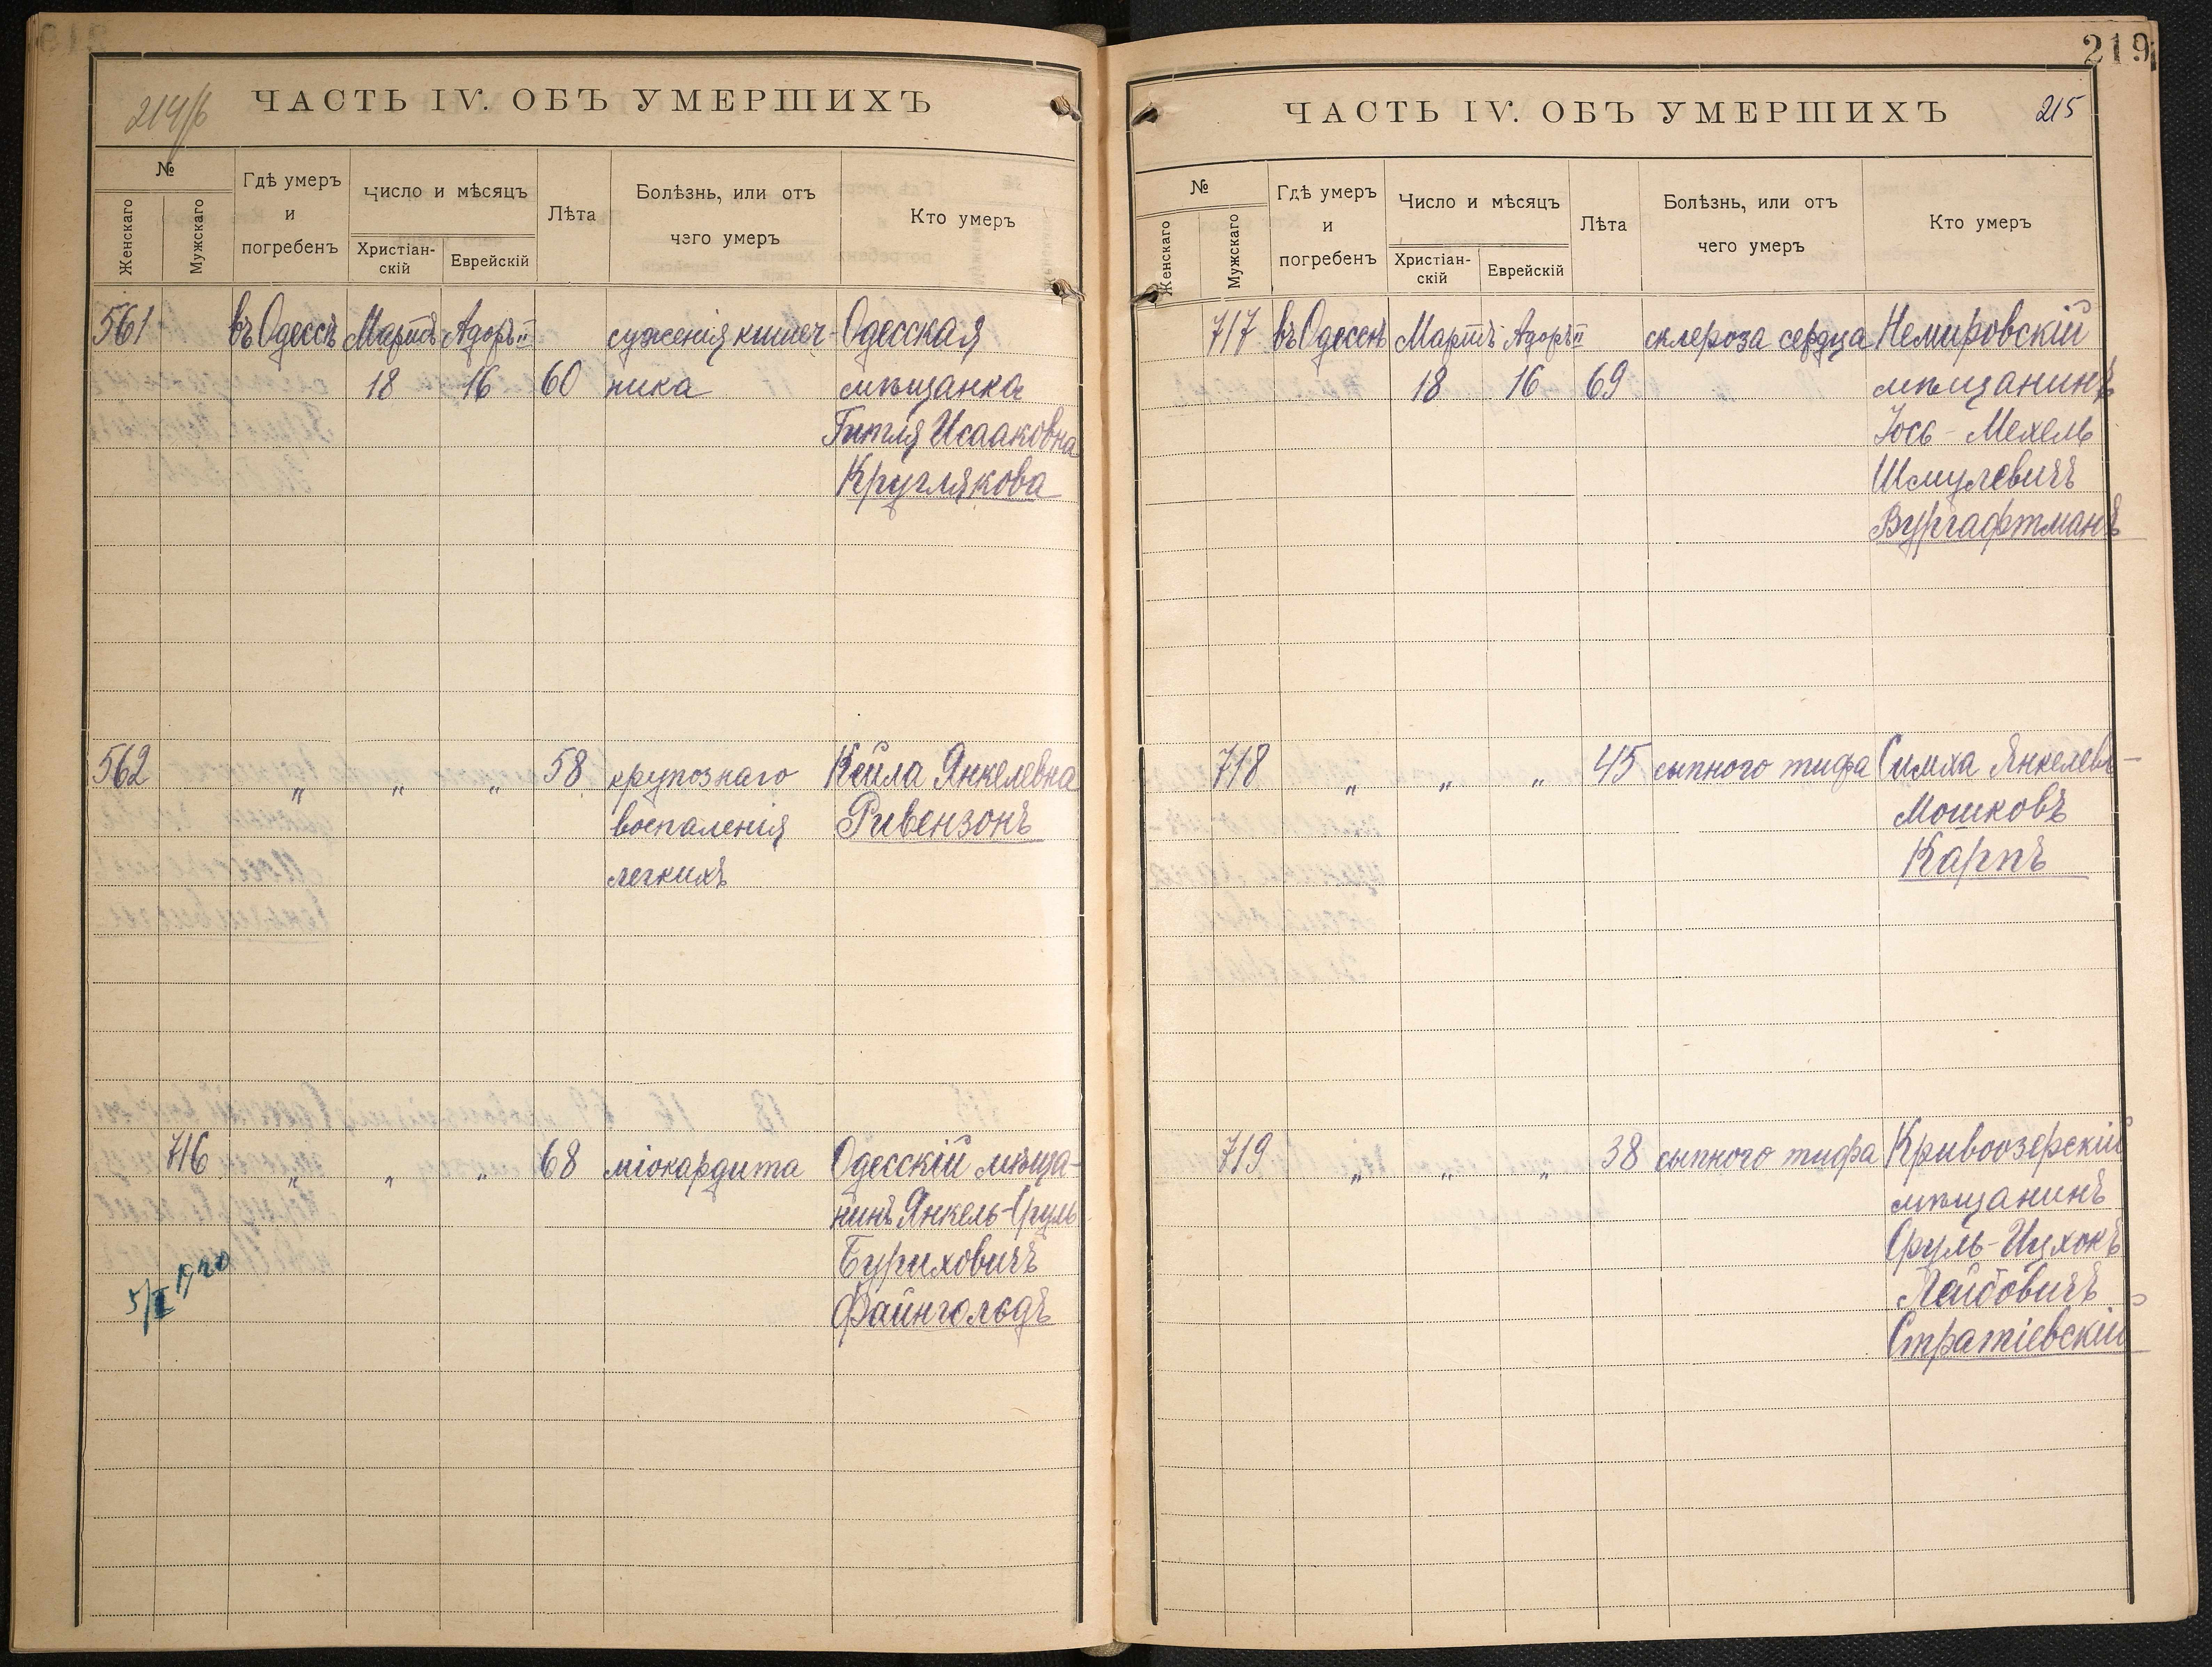 214/б
ЧАСТЬ IV. ОБЪ УМЕРШИХЪ
№
Женскаго
Мужскаго
Гдѣ умеръ
и
погребенъ
Число и мѣсяцъ
Христіан-
скій
Еврейскій
Лѣта
Болѣзнь, или отъ
чего умеръ
Кто умеръ
561 въ Одессѣ Мартъ Адоръ II суженія кишеч- Одесская
18 16 60 ника мѣщанка
Гитля Исааковна
Круглякова
562 „ „ „ 58 крупознаго Кейла Янкелевна
воспаленія Ривензонъ
легкихъ
716 „ „ „ 68 міокардита Одесскій мѣща-
нинъ Янкель-Сруль
Буриховичъ
Файнгольдъ
5/II 1920
219
ЧАСТЬ IV. ОБЪ УМЕРШИХЪ
215
№
Женскаго
Мужскаго
Гдѣ умеръ
и
погребенъ
Число и мѣсяцъ
Христіан-
скій
Еврейскій
Лѣта
Болѣзнь, или отъ
чего умеръ
Кто умеръ
717 въ Одессѣ Мартъ Адоръ II склероза сердца Немировскій
18 16 69 мѣщанинъ
Іось-Мехель
Шмулевичъ
Вургафтманъ
718 „ „ „ 45 сыпного тифа Симха Янкелевъ-
Мошковъ
Карпъ
719 „ „ „ 38 сыпного тифа Кривоозерскій
мѣщанинъ
Сруль-Ицхокъ
Лейбовичъ
Стратіевскій